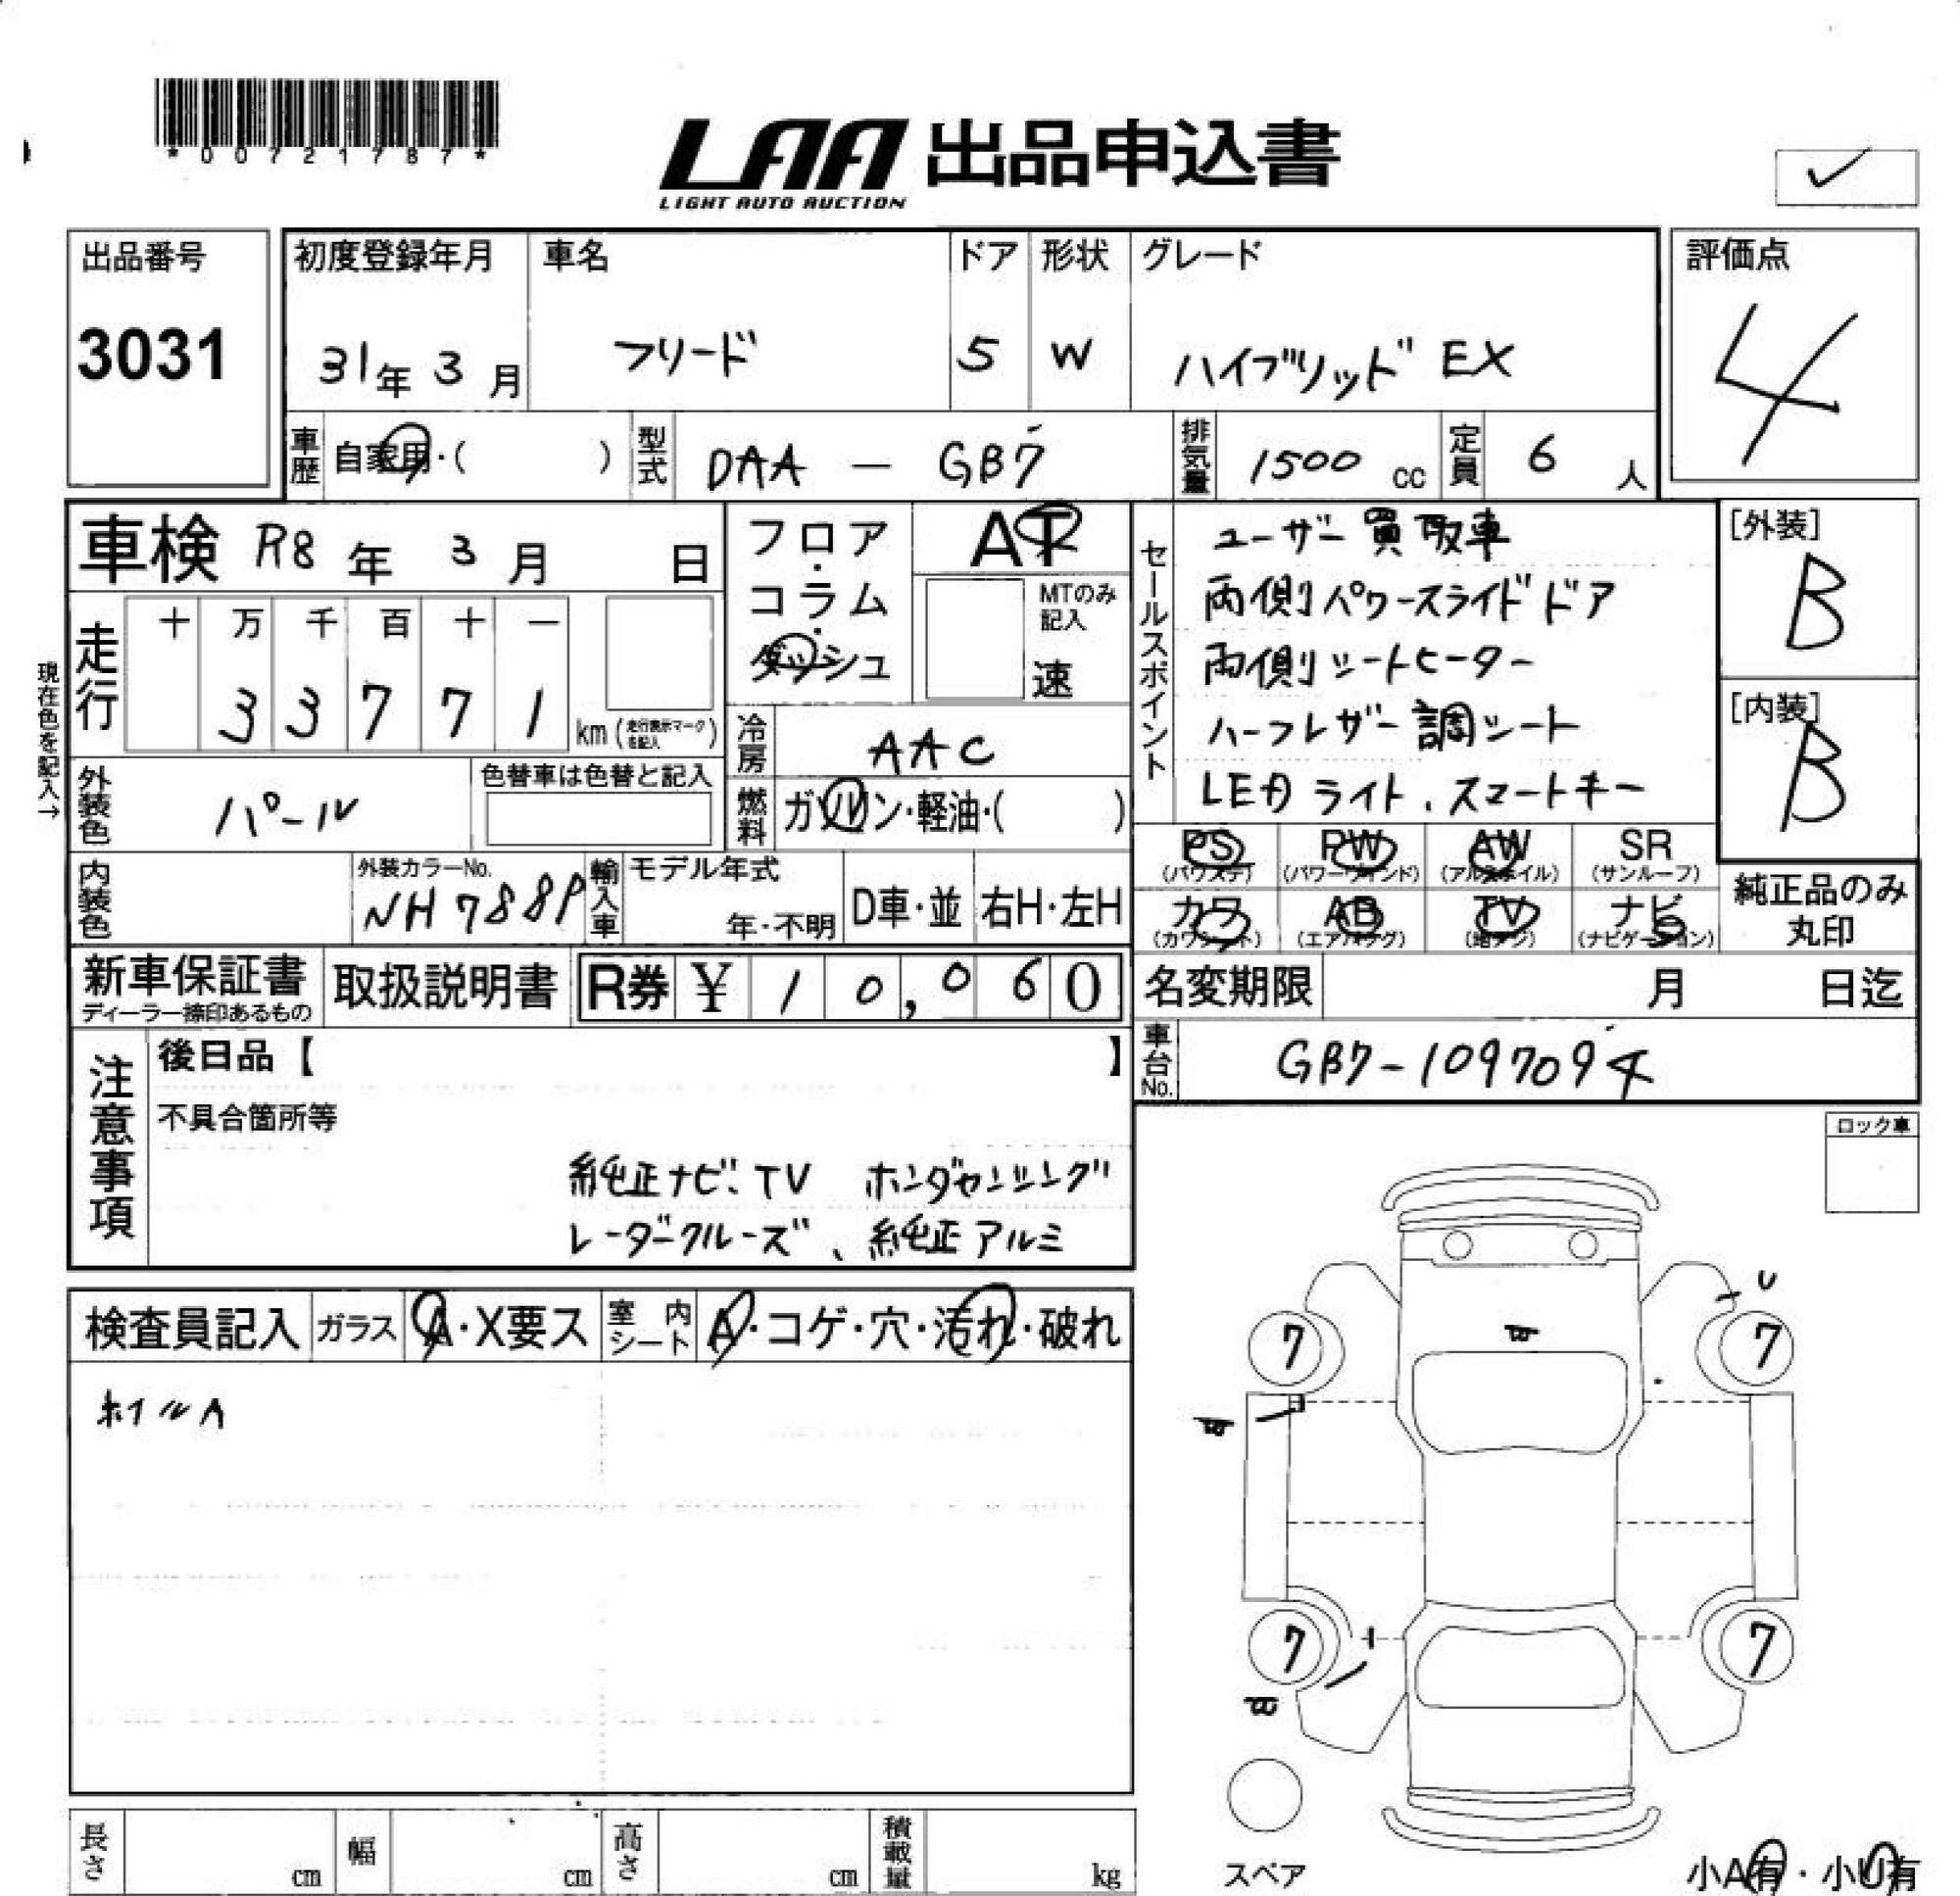 *00721787*
LAA 出品申込書
LIGHT AUTO AUCTION
✓
出品番号
3031
初度登録年月
31年 3月
車名
フリード
ドア
5
形状
W
グレード
ハイブリッド EX
評価点
4
車歴 自家用・( )
型式 DAA － GB7
排気量 1500 cc
定員 6 人
車検 R8年 3月 日
フロア・コラム・ダッシュ
AT
MTのみ記入
速
セールスポイント
ユーザー買取車
両側パワースライドドア
両側シートヒーター
ハーフレザー調シート
LEDライト、スマートキー
[外装]
B
[内装]
B
現在色を記入→
走行
十 万 千 百 十 一
3 3 7 7 1
km (走行表示マークを記入)
冷房 AAC
外装色 パール
色替車は色替と記入
燃料 ガソリン・軽油・( )
PS (パワステ)
PW (パワーウインド)
AW (アルミホイル)
SR (サンルーフ)
カワ (カワシート)
AB (エアバッグ)
TV (地デジ)
ナビ (ナビゲーション)
純正品のみ丸印
内装色
外装カラーNo.
NH788P
輸入車
モデル年式
年・不明
D車・並
右H・左H
新車保証書
ディーラー捺印あるもの
取扱説明書
R券 ¥ 10,060
名変期限 月 日迄
車台No. GB7-1097094
注意事項
後日品【 】
不具合箇所等
純正ナビ、TV ホンダセンシング
レーダークルーズ、純正アルミ
ロック車
検査員記入
ガラス A・X要ス
室内シート A・コゲ・穴・汚れ・破れ
ホイルA
U
7 7
7 7
スペア
長さ cm
幅 cm
高さ cm
積載量 kg
小A有・小U有